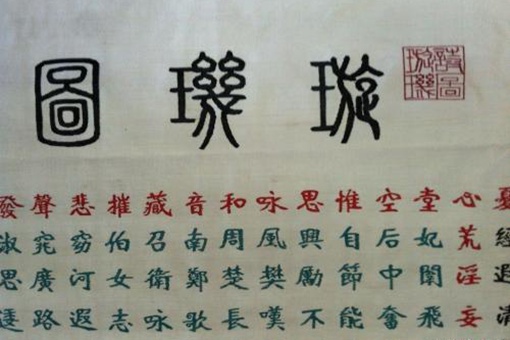 璇璣圖
詩圖璇璣
發聲悲摧藏音和咏思惟空堂心憂
淑窕窈伯召南周風興自后妃荒經
思廣河女衛鄭楚樊勵節中闈淫遐
逶路遐志咏歌長嘆不能奮飛妄清